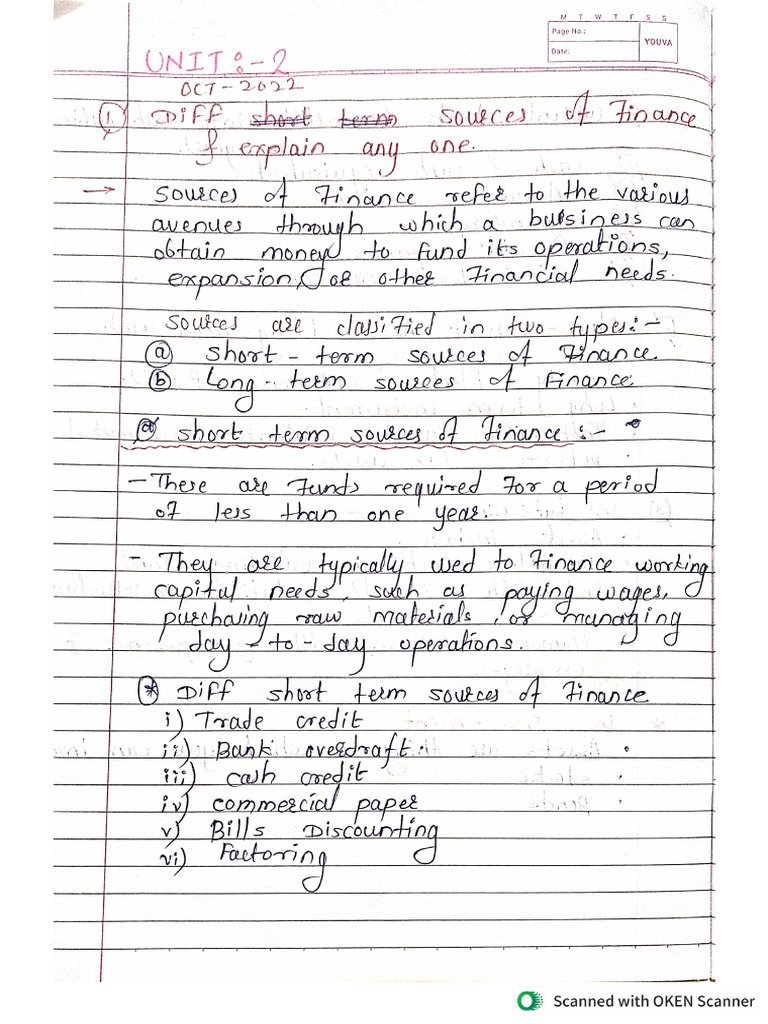 M T W T F S S
Page No.:
YOUVA
Date:
UNIT:-2
OCT-2022
1. Diff short term sources of Finance
& explain any one.
→ Sources of Finance refer to the various
avenues through which a business can
obtain money to fund its operations,
expansion, or other Financial needs.
Sources are classified in two types:-
(a) Short-term sources of Finance.
(b) Long-term sources of Finance.
(a) Short term sources of Finance:-
- These are Funds required For a period
of less than one year.
- They are typically used to Finance working
capital needs, such as paying wages,
purchasing raw materials, or managing
day-to-day operations.
* Diff short term sources of Finance
i) Trade credit
ii) Bank overdraft.
iii) cash credit
iv) commercial paper
v) Bills Discounting
vi) Factoring
Scanned with OKEN Scanner